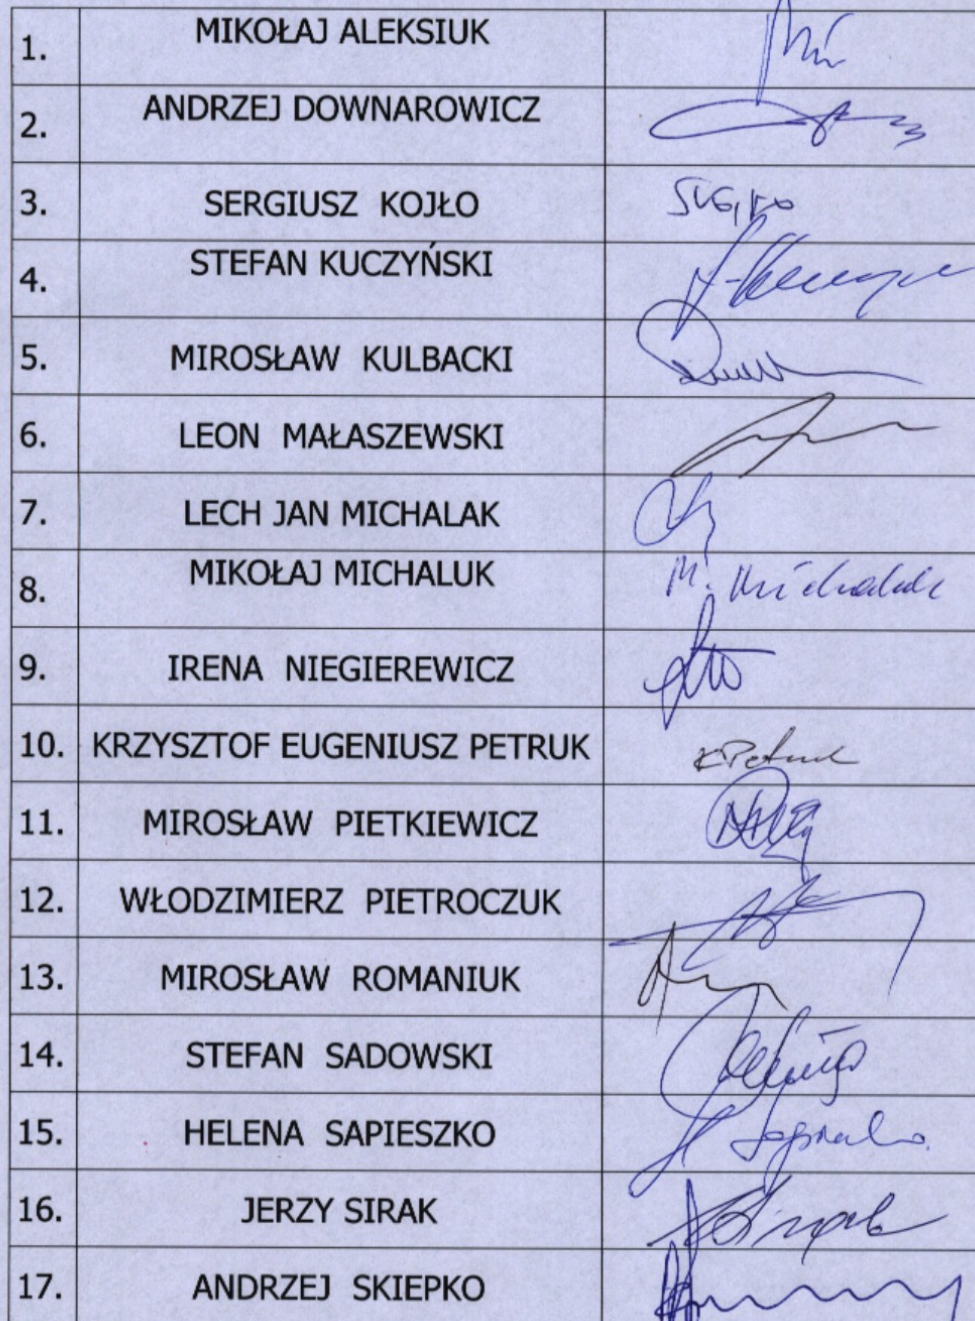 1. MIKOŁAJ ALEKSIUK
2. ANDRZEJ DOWNAROWICZ
3. SERGIUSZ KOJŁO
4. STEFAN KUCZYŃSKI
5. MIROSŁAW KULBACKI
6. LEON MAŁASZEWSKI
7. LECH JAN MICHALAK
8. MIKOŁAJ MICHALUK M. Michaluk
9. IRENA NIEGIEREWICZ
10. KRZYSZTOF EUGENIUSZ PETRUK KPetruk
11. MIROSŁAW PIETKIEWICZ
12. WŁODZIMIERZ PIETROCZUK
13. MIROSŁAW ROMANIUK
14. STEFAN SADOWSKI
15. HELENA SAPIESZKO
16. JERZY SIRAK
17. ANDRZEJ SKIEPKO